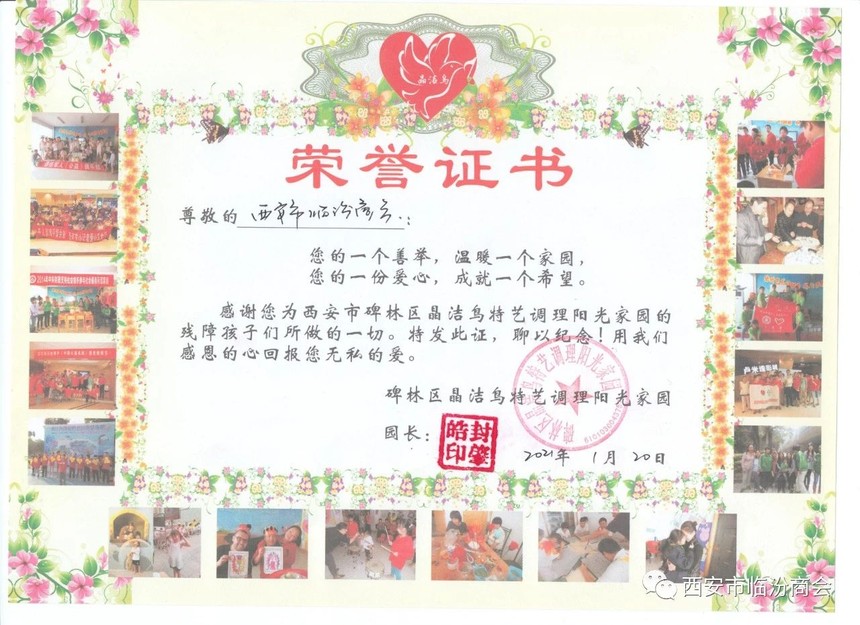 晶洁鸟
荣誉证书
尊敬的 西安市临汾商会：
您的一个善举，温暖一个家园，
您的一份爱心，成就一个希望。
感谢您为西安市碑林区晶洁鸟特艺调理阳光家园的
残障孩子们所做的一切。特发此证，聊以纪念！用我们
感恩的心回报您无私的爱。
碑林区晶洁鸟特艺调理阳光家园
园长：
封肇皓印
碑林区晶洁鸟特艺调理阳光家园
2021年 1月 20日
西安市临汾商会